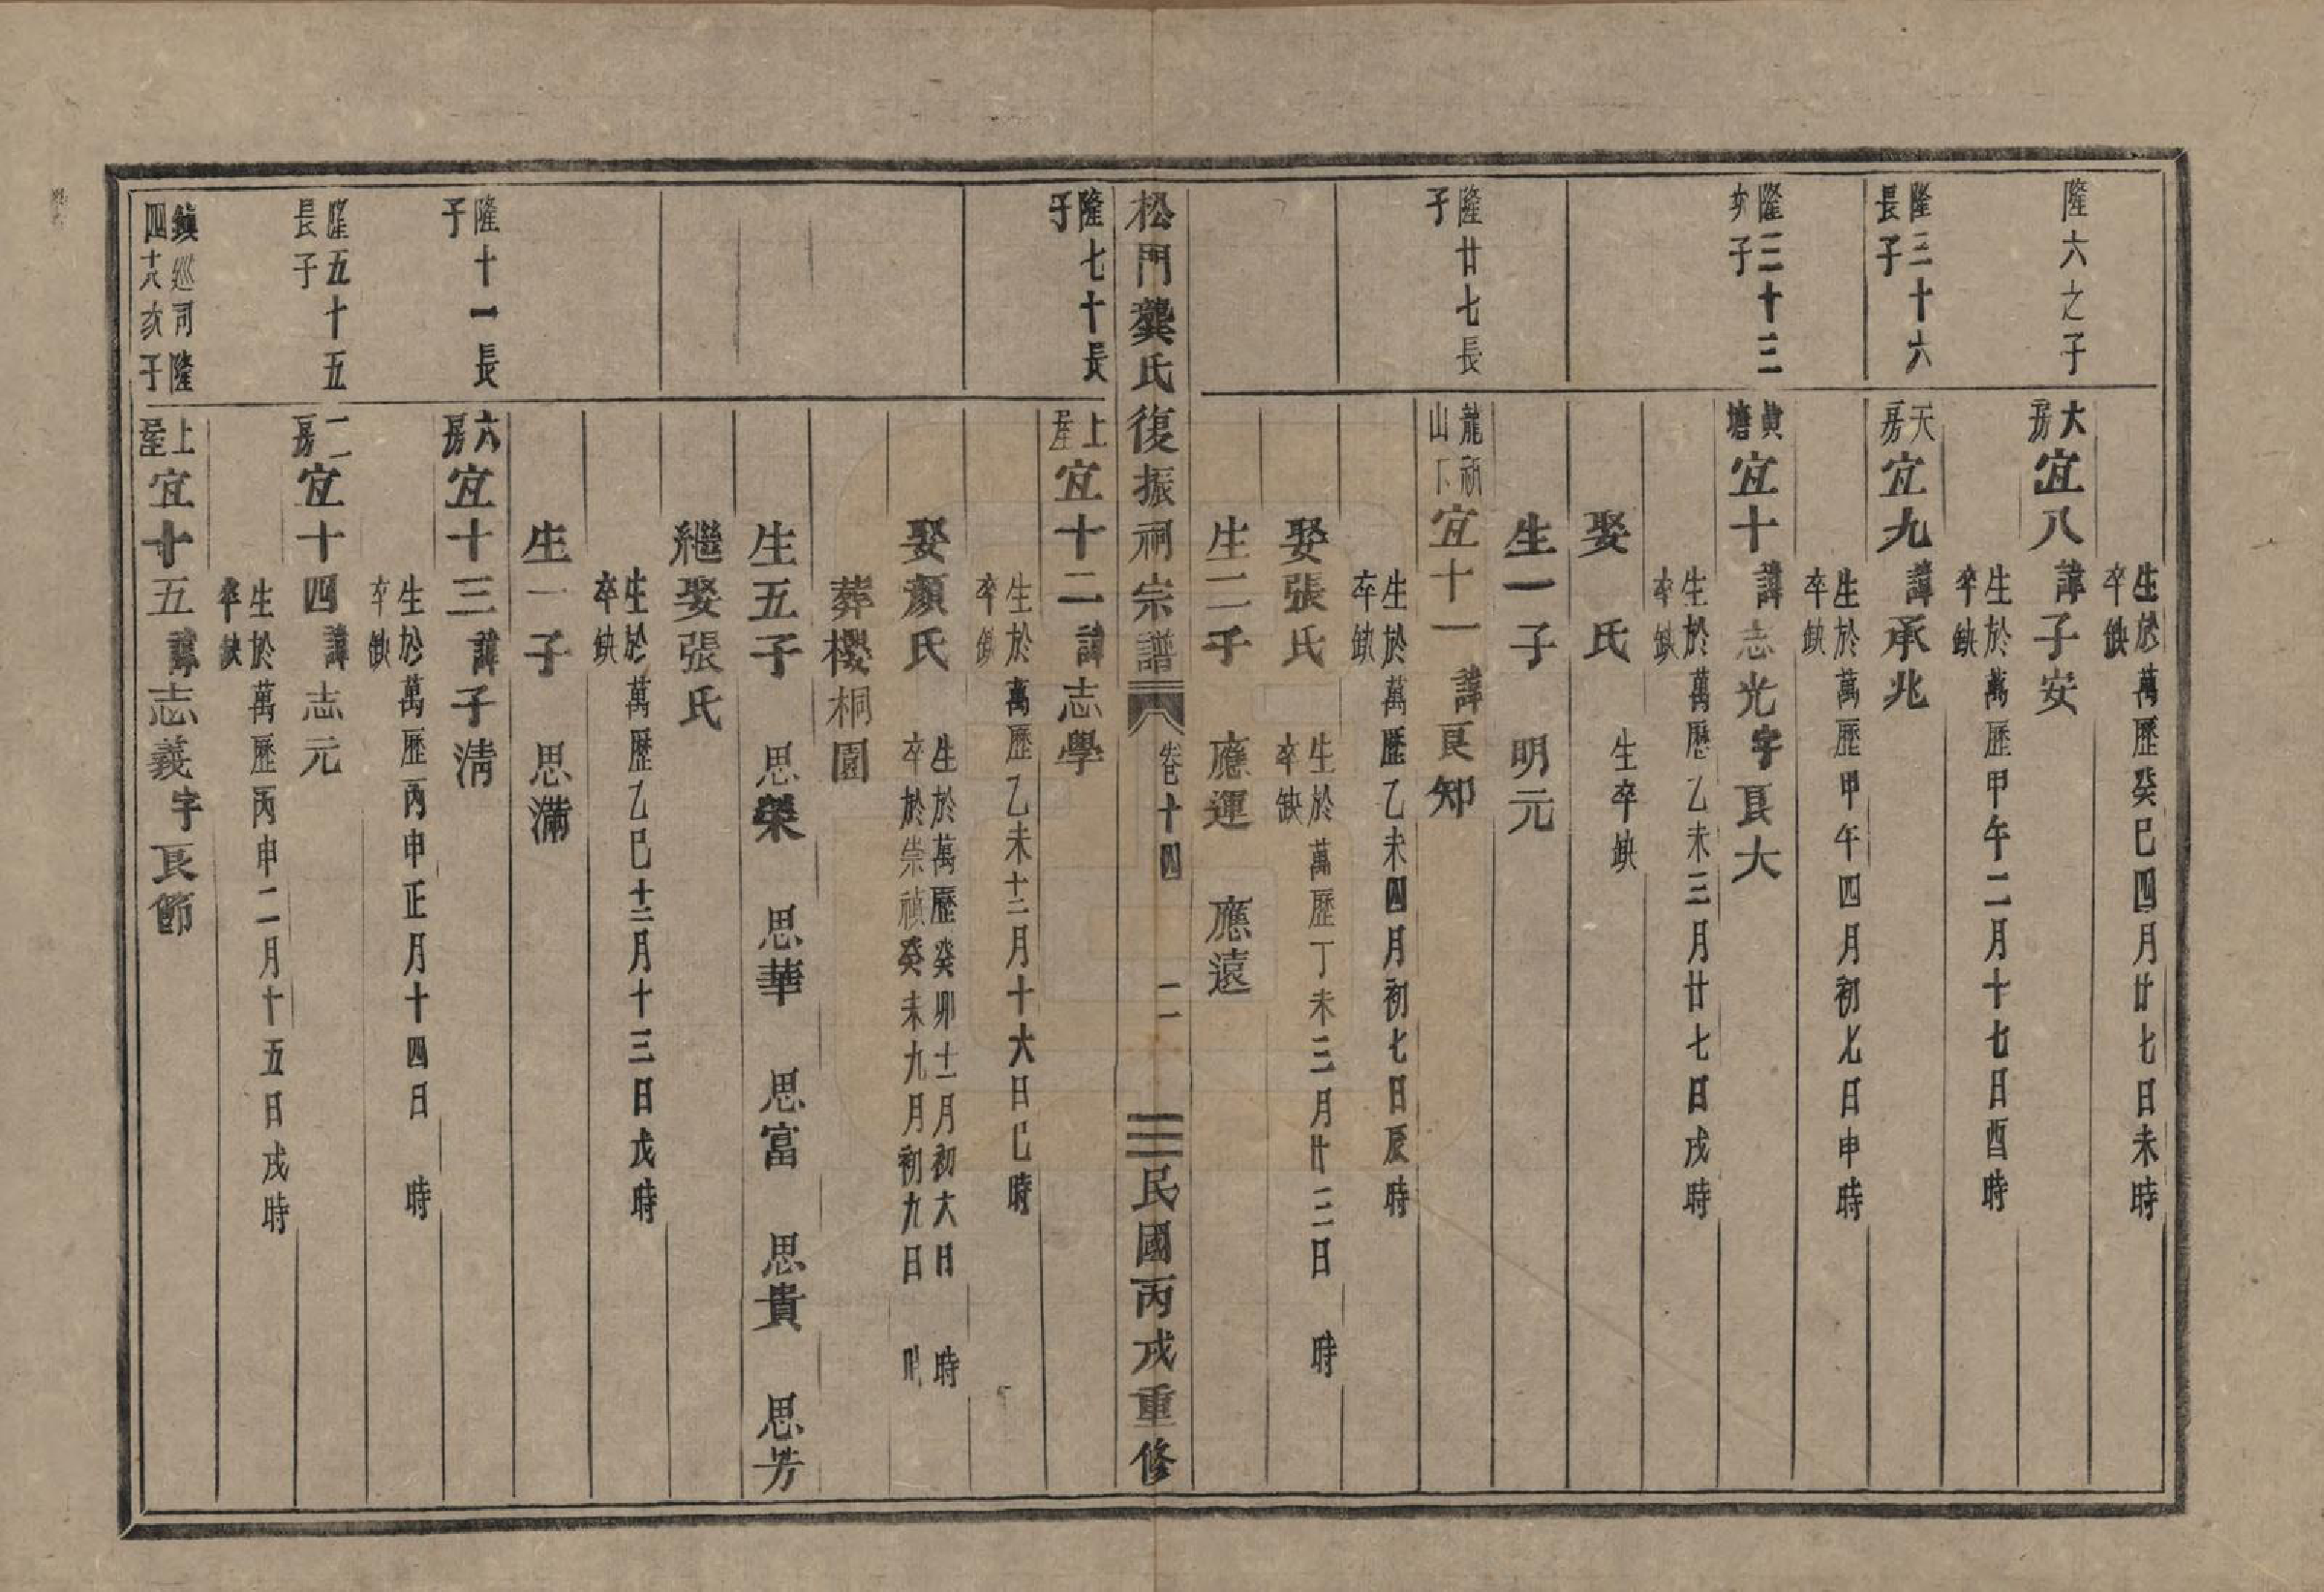 生於萬歷癸巳四月廿七日未時
卒缺
隆六之子
大房宜八諱子安
生於萬歷甲午二月十七日酉時
卒缺
隆三十六長子
天房宜九諱承兆
生於萬歷甲午四月初七日申時
卒缺
隆三十三次子
黄塘宜十諱志光字良大
生於萬歷乙未三月廿七日戌時
卒缺
娶 氏 生卒缺
生一子 明元
隆廿七長子
龍祈山下宜十一諱良知
生於萬歷乙未四月初七日辰時
卒缺
娶張氏 生於萬歷丁未三月廿三日 時
卒缺
生二子 應運 應遠
松門龔氏復振祠宗譜 卷十四 二 民國丙戌重修
隆七十長子
上屋宜十二諱志學
生於萬歷乙未十二月十六日巳時
卒缺
娶顏氏 生於萬歷癸卯十二月初六日 時
卒於崇禎癸未九月初九日 時
葬櫻桐園
生五子 思榮 思華 思富 思貴 思芳
繼娶張氏
生於萬歷乙巳十二月十三日戌時
卒缺
生一子 思滿
隆十一長子
六房宜十三諱子清
生於萬歷丙申正月十四日 時
卒缺
隆五十五長子
二房宜十四諱志元
生於萬歷丙申二月十五日戌時
卒缺
鎮巡司隆四十八次子
上屋宜十五諱志義字良節